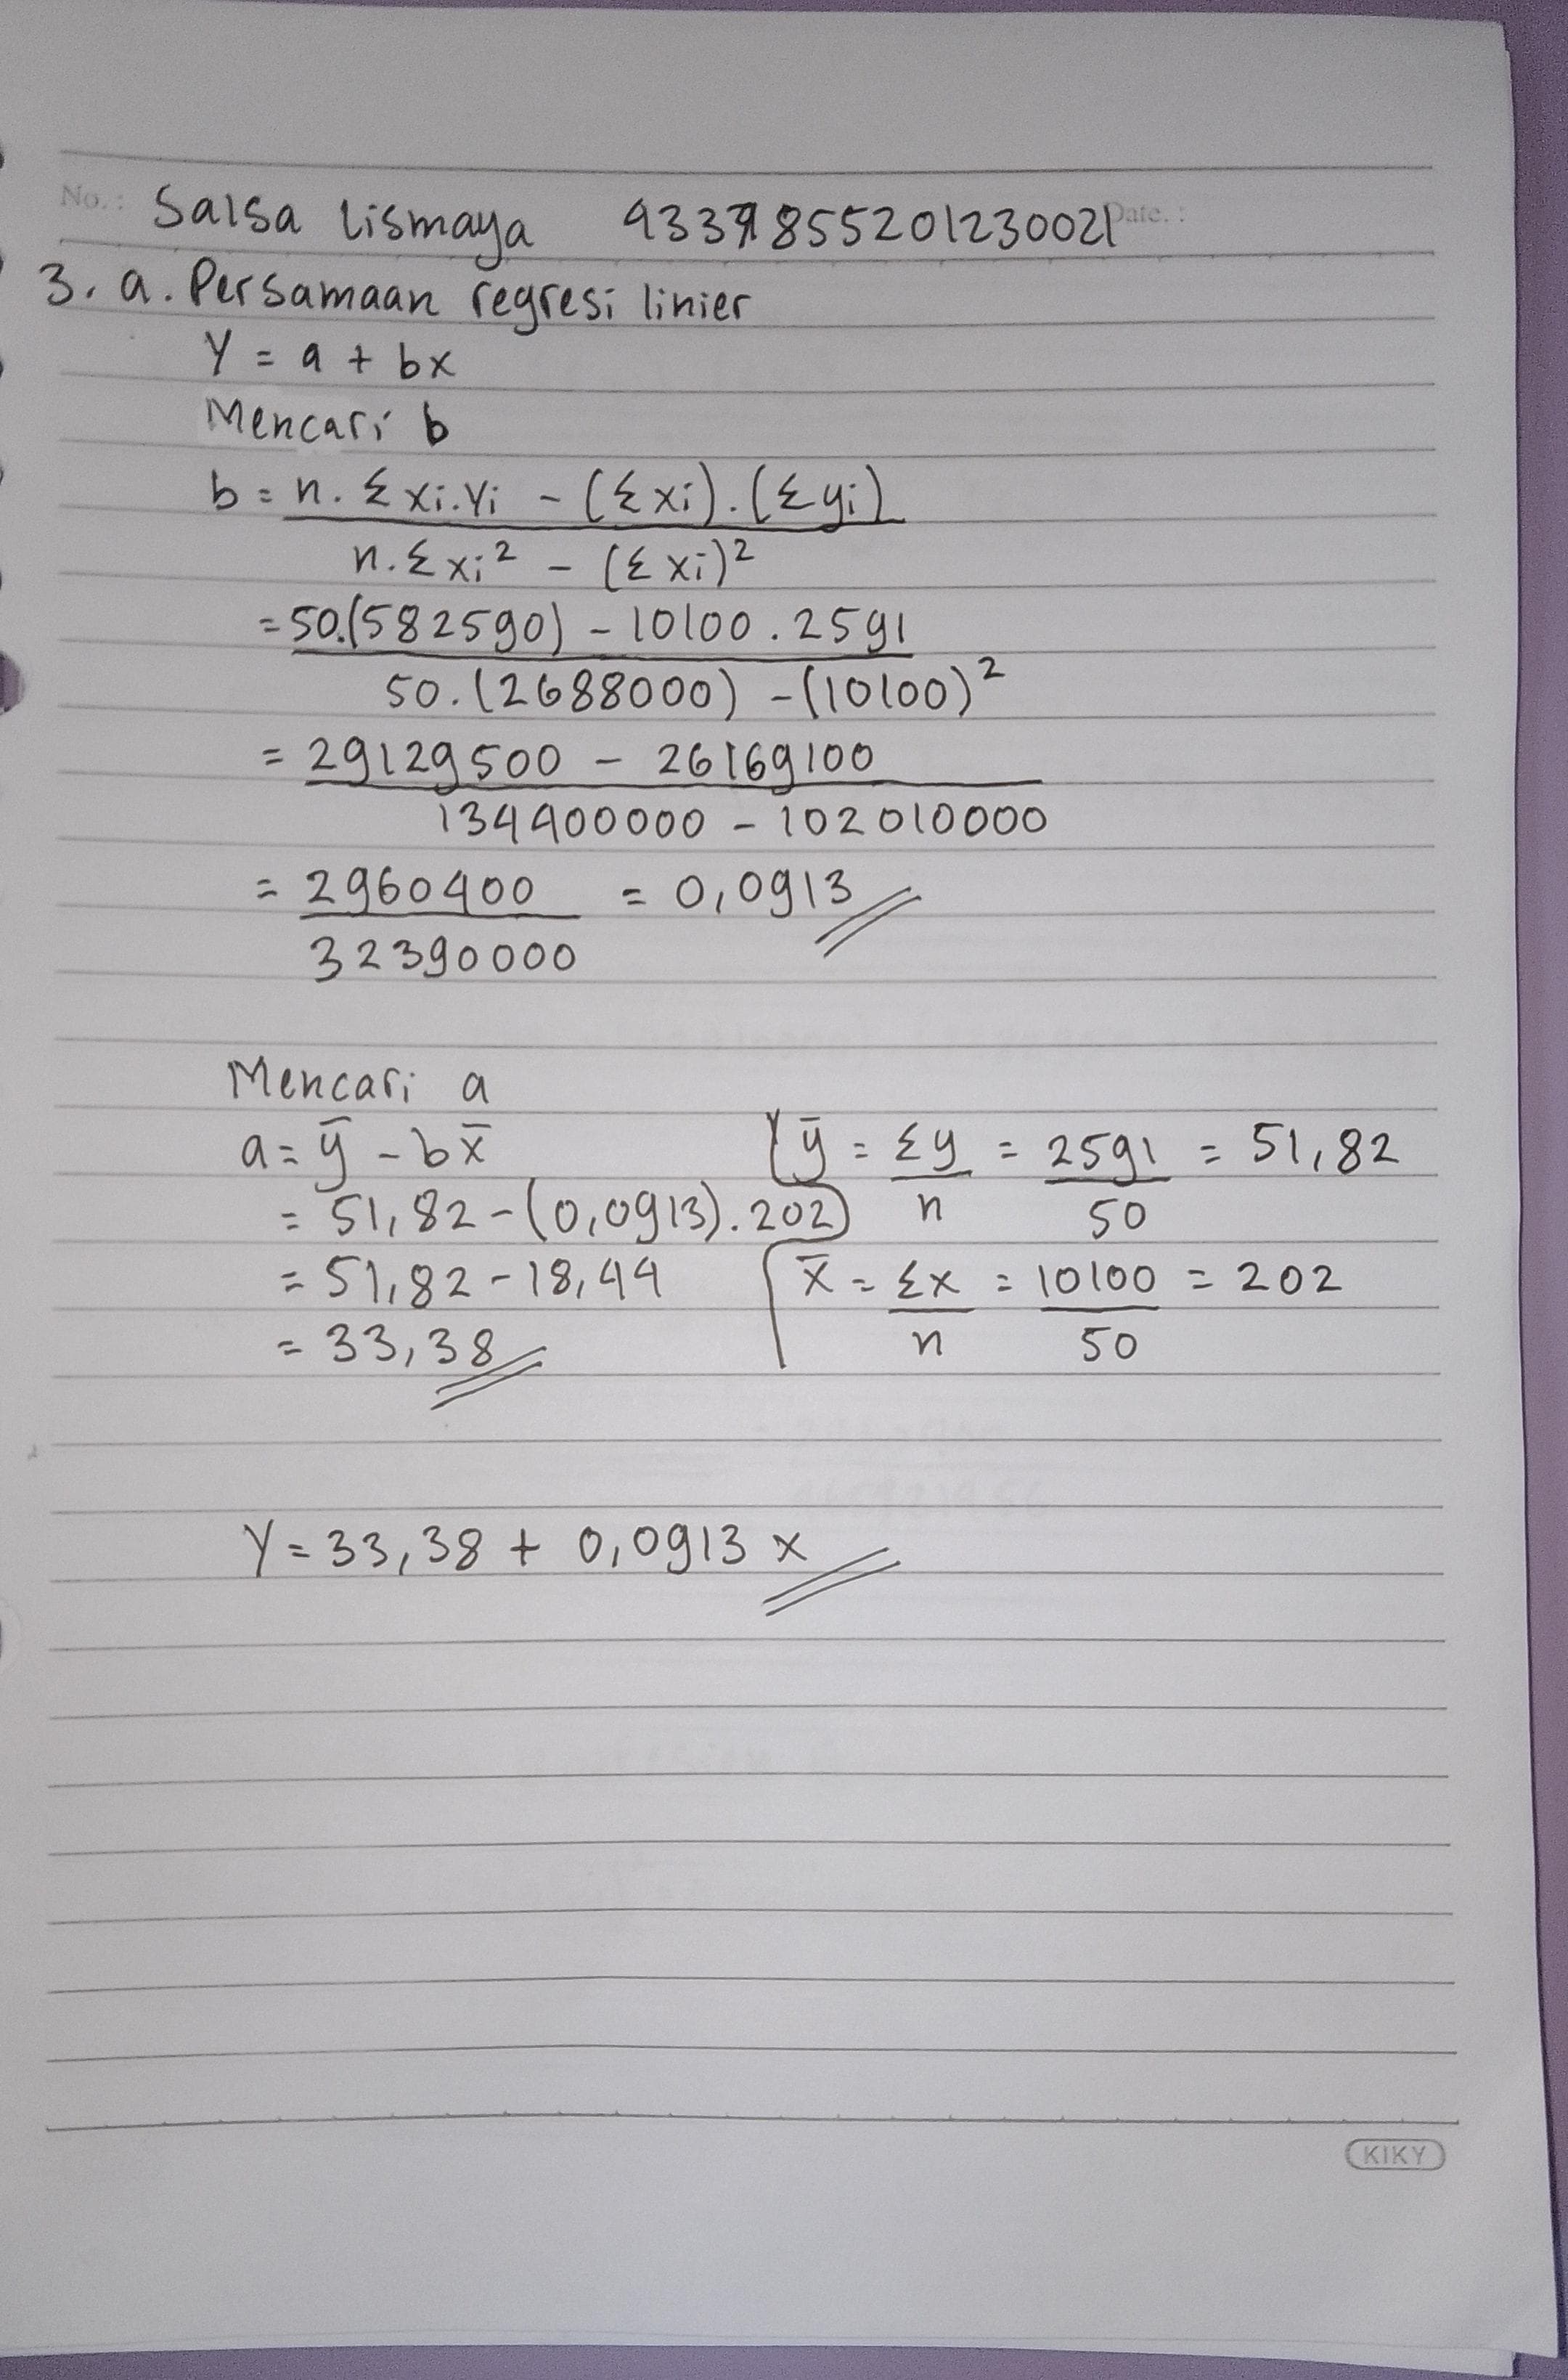 No.: Salsa Lismaya 4337855201230021 Date. :
3. a. Persamaan regresi linier
Y = a + bx
Mencari b
b = n. Σ xi.Yi - (Σxi).(Σyi)
n. Σ xi² - (Σ xi)²
= 50.(582590) - 10100 . 2591
50.(2688000) - (10100)²
= 29129500 - 26169100
134400000 - 102010000
= 2960400 = 0,0913
32390000
Mencari a
a = ȳ - bx̄
ȳ = Σy = 2591 = 51,82
n 50
= 51,82 - (0,0913).202
= 51,82 - 18,44
x̄ = Σx = 10100 = 202
n 50
= 33,38
Y = 33,38 + 0,0913 x
KIKY